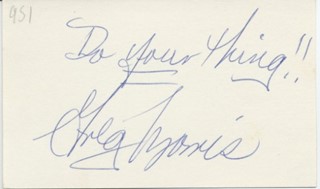 931
Do your thing!!
Greg Morris